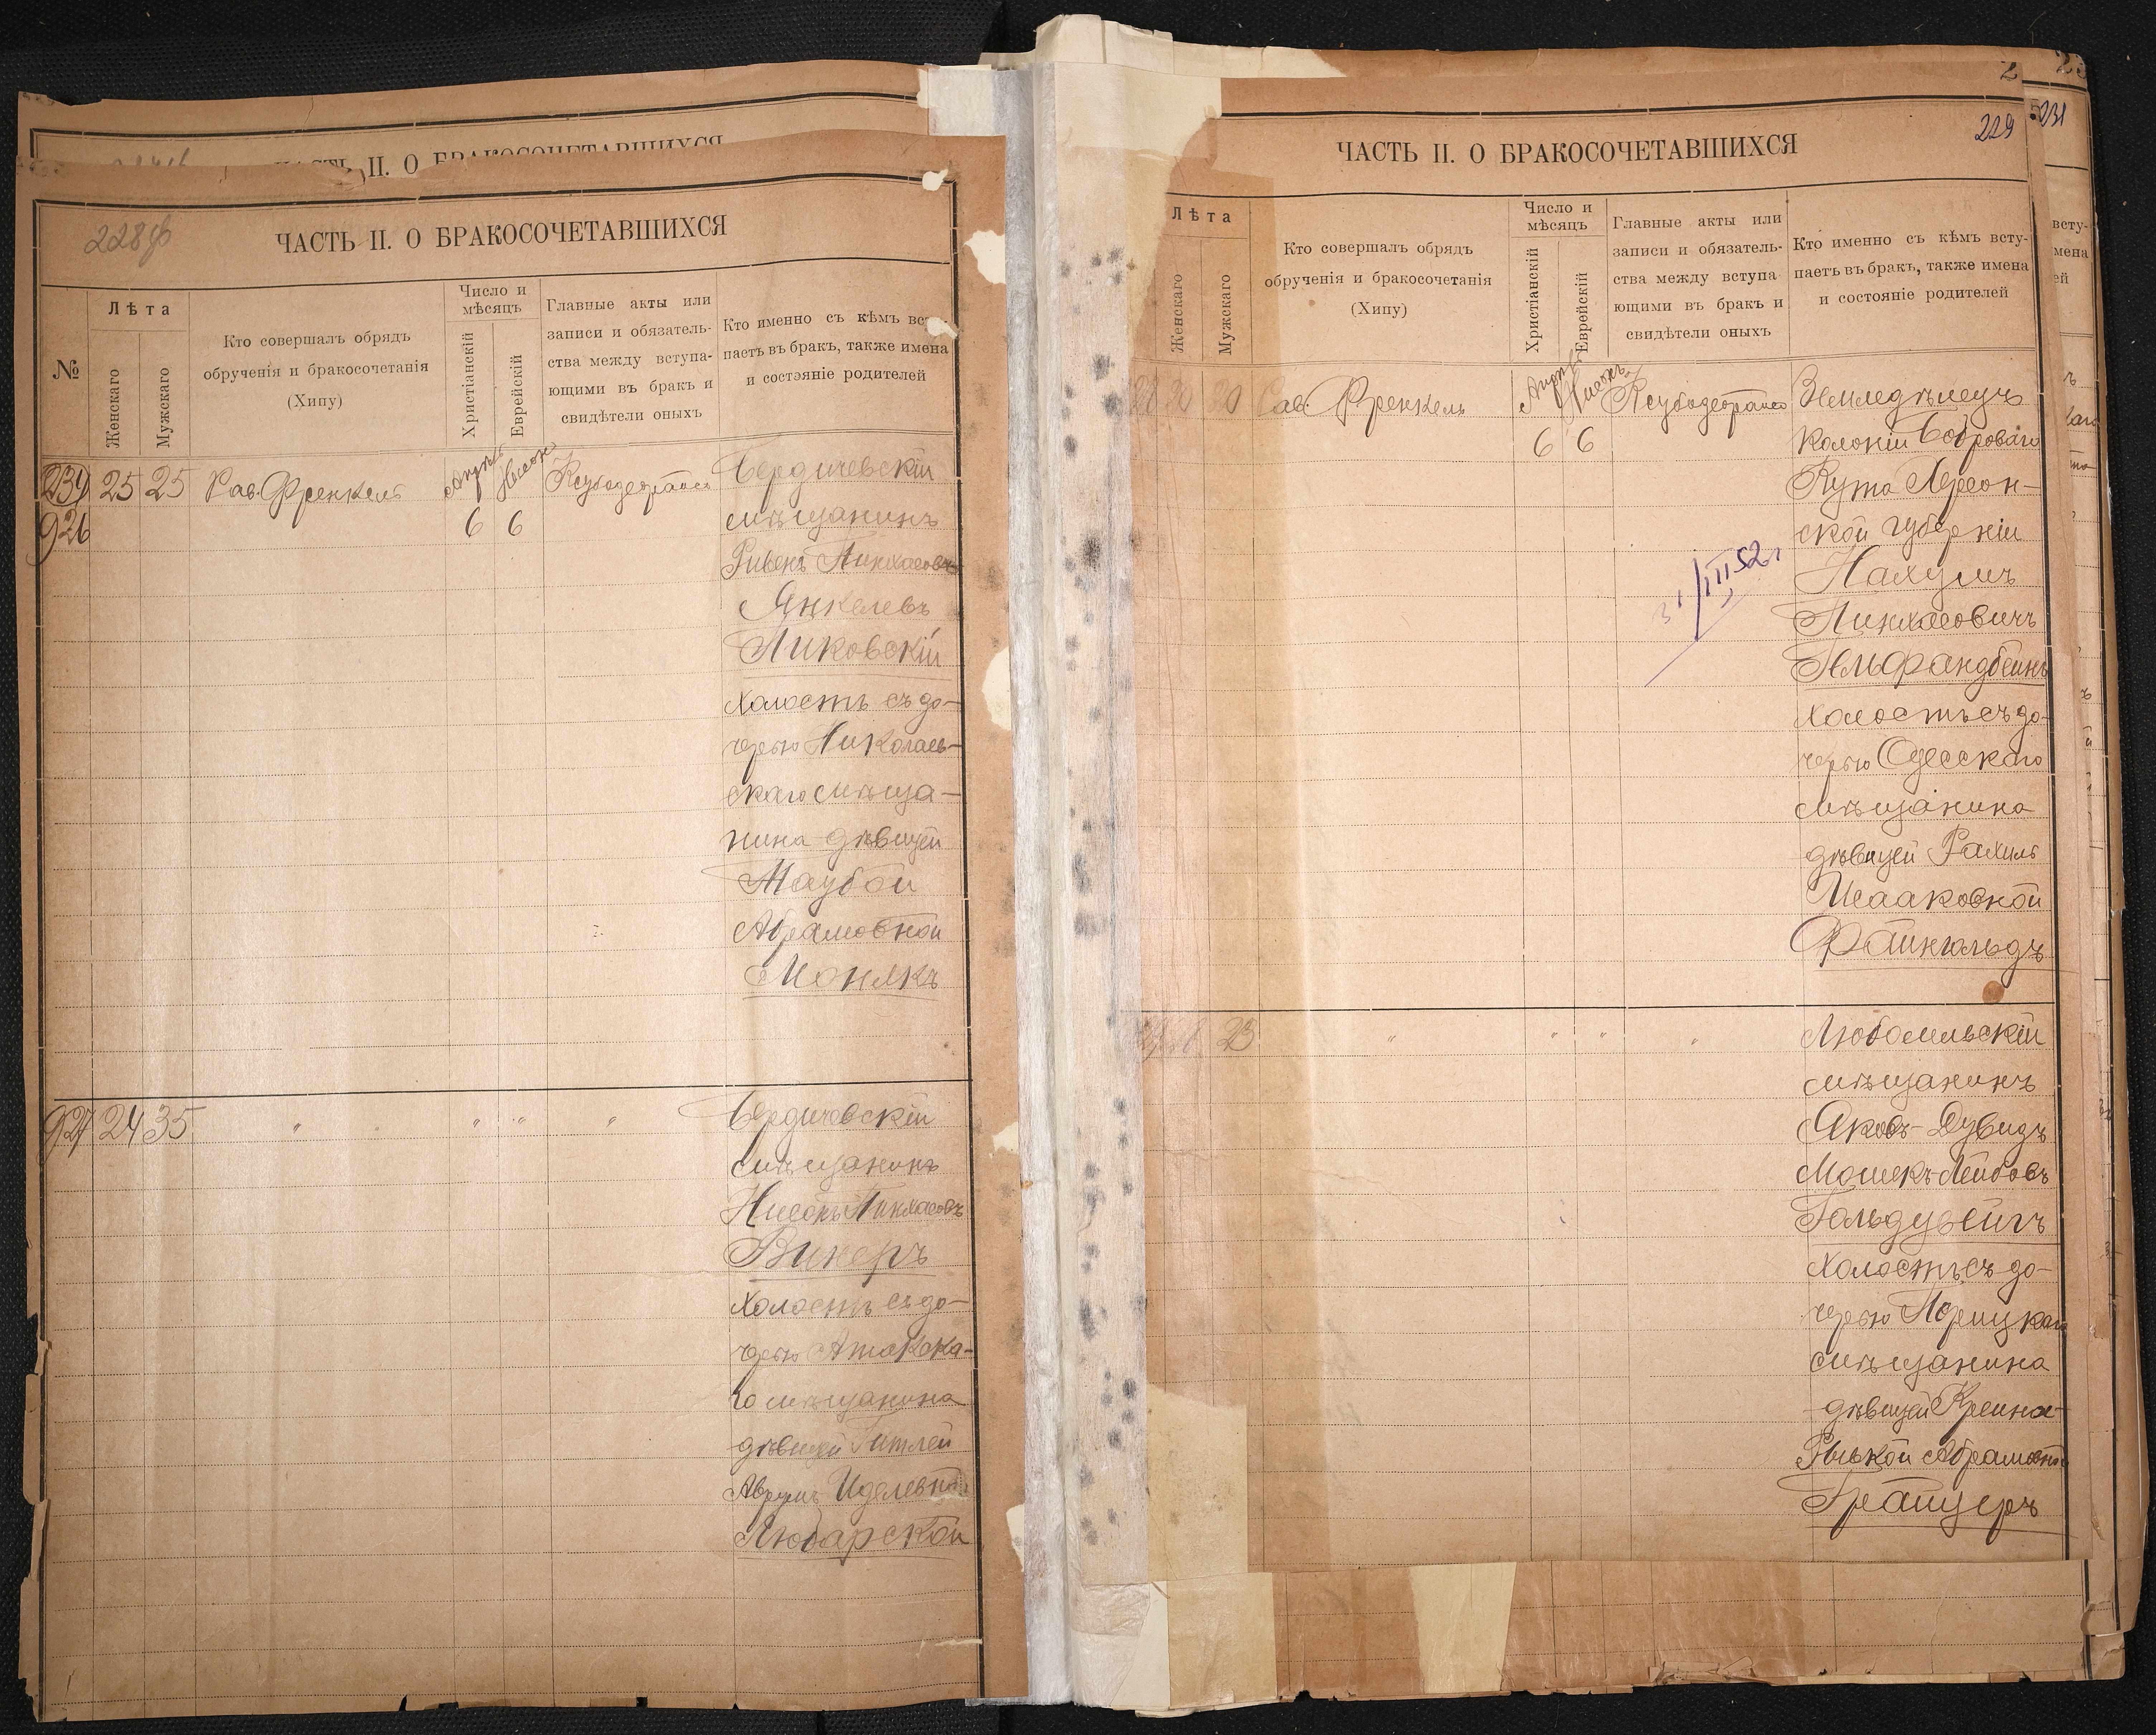 ЧАСТЬ II. О БРАКОСОЧЕТАВШИХСЯ
228
ЧАСТЬ II. О БРАКОСОЧЕТАВШИХСЯ
№
Лѣта
Женскаго
Мужскаго
Кто совершалъ обрядъ
обрученія и бракосочетанія
(Хипу)
Число и
мѣсяцъ
Христіанскій
Еврейскій
Главные акты или
записи и обязатель-
ства между вступа-
ющими въ бракъ и
свидѣтели оныхъ
Кто именно съ кѣмъ
паетъ въ бракъ, также имена
и состояніе родителей
239 25 25 Рав. Френкель
926
6 6
Бердичевскій
мѣщанинъ
Рувенъ Пинхасовъ
Янкелевъ
Ликовскій
холостъ съ до-
черью Николаев-
скаго мѣща-
нина дѣвицей
Таубой
Абрамовной
Монякъ
927 24 35 " " " "
Бердичевскій
мѣщанинъ
Нисонъ Пинхасовъ
Винеръ
холостъ съ до-
черью Атакска-
го мѣщанина
дѣвицей Гитлей
Аврумъ Иделевной
Любарской
229
231
ЧАСТЬ II. О БРАКОСОЧЕТАВШИХСЯ
Лѣта
Женскаго
Мужскаго
Кто совершалъ обрядъ
обрученія и бракосочетанія
(Хипу)
Число и
мѣсяцъ
Христіанскій
Еврейскій
Главные акты или
записи и обязатель-
ства между вступа
ющими въ бракъ и
свидѣтели оныхъ
Кто именно съ кѣмъ всту-
паетъ въ бракъ, также имена
и состояніе родителей
Френкель
6 6
Земледѣлецъ
колоніи Боброваго
Кута Херсон-
ской губерніи
Нахумъ
Пинхасовичъ
Гельфандбейнъ
холостъ съ до-
черью Одесскаго
мѣщанина
дѣвицей Рахиль
Исааковной
Файнгольдъ
23 " " " "
Любомльскій
мѣщанинъ
Яковъ-Дувидъ
Мошекъ-Лейбовъ
Гольдцвейгъ
холостъ съ до-
черью
мѣщанина
дѣвицей Крейна-
Рывкой Абрамовной
Грайцеръ